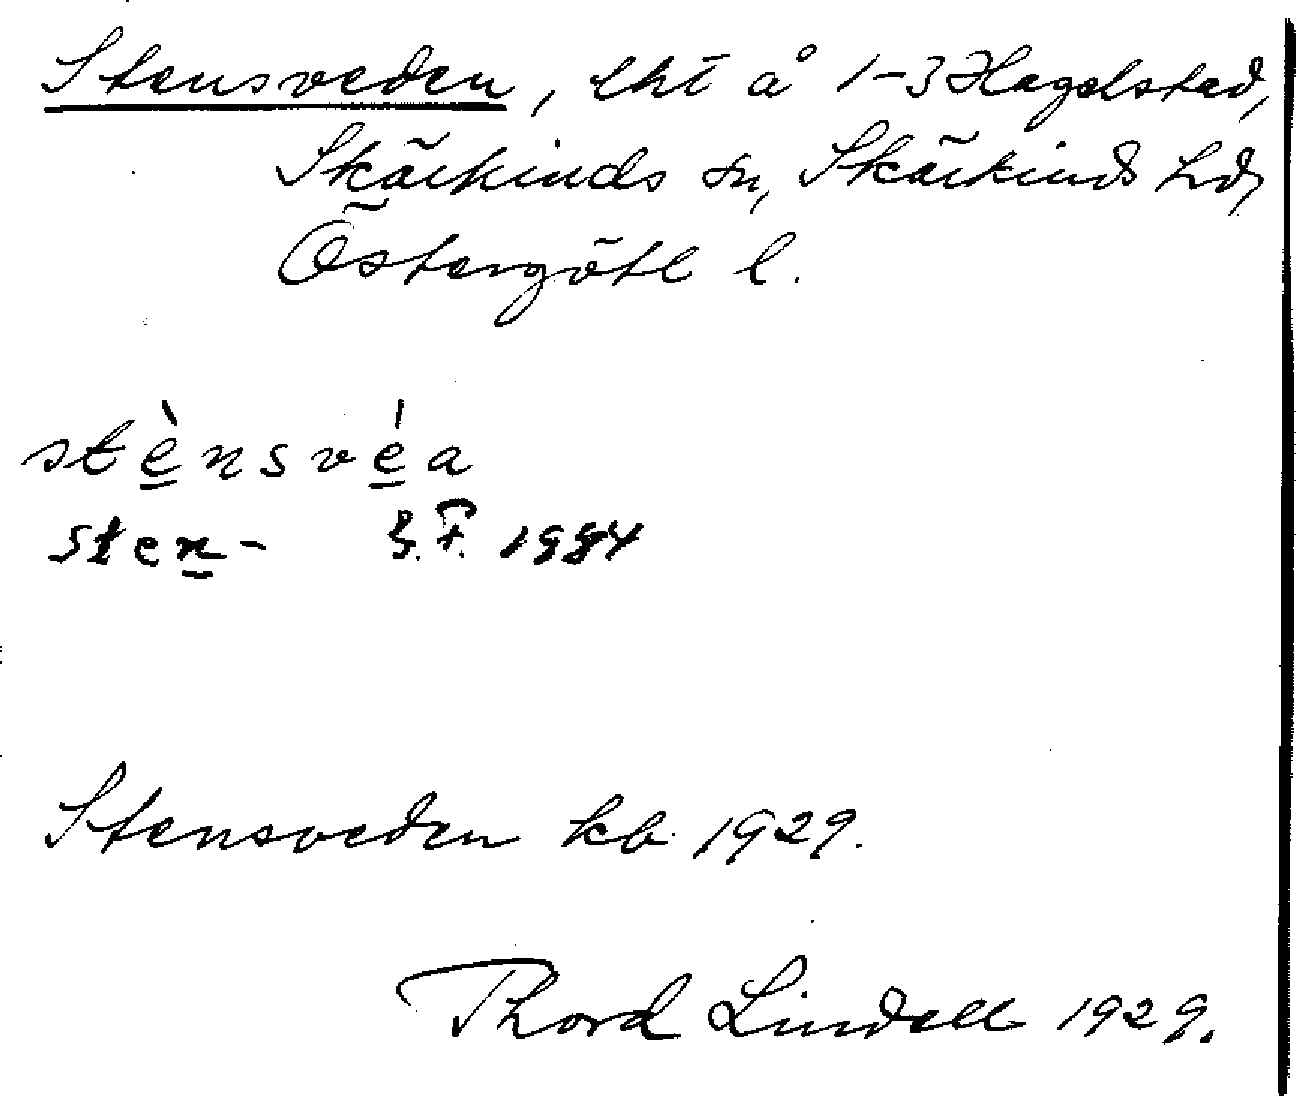 Stensveden, lht å 1-3 Hagelstad,
Skärkinds sn, Skärkind hd,
Östergötl l.
stè̱nsvé̱a
sten̲- G.F. 1984
Stensveden kb 1929.
Thord Lindell 1929.